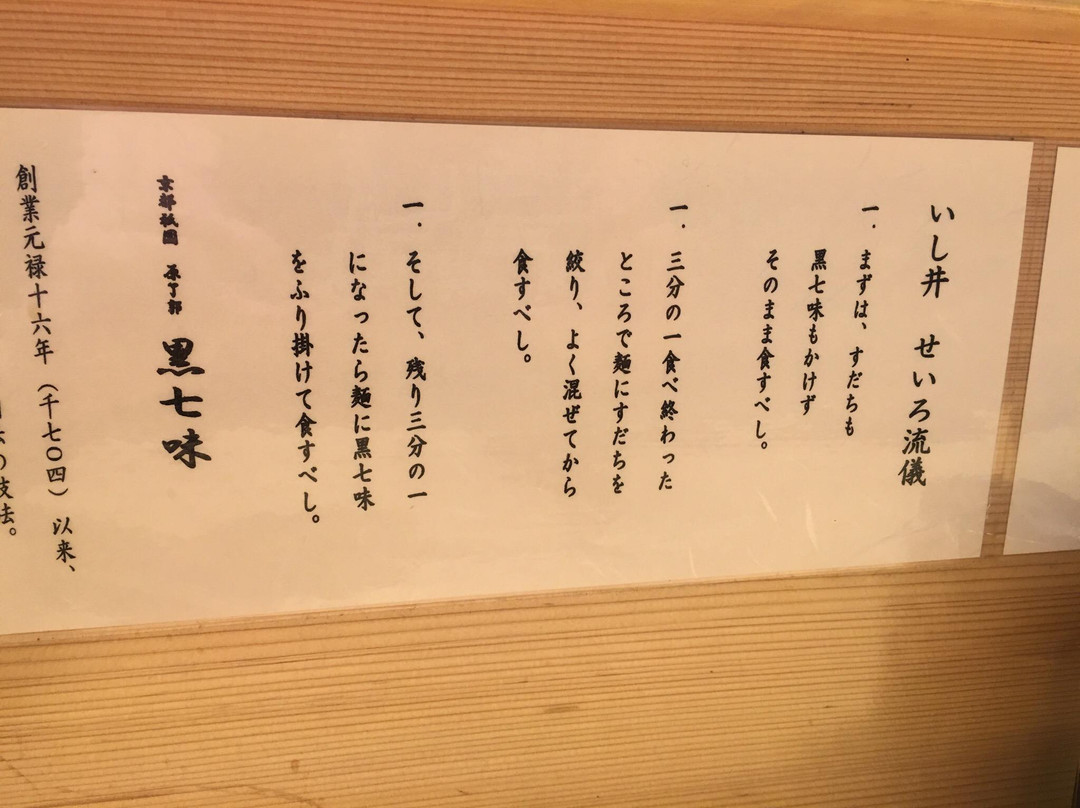 いし井 せいろ流儀
一. まずは、すだちも
黒七味もかけず
そのまま食すべし。
一. 三分の一食べ終わった
ところで麺にすだちを
絞り、よく混ぜてから
食すべし。
一. そして、残り三分の一
になったら麺に黒七味
をふり掛けて食すべし。
京都祇園 原了郭 黒七味
創業元禄十六年(千七〇四)以来、
の技法。